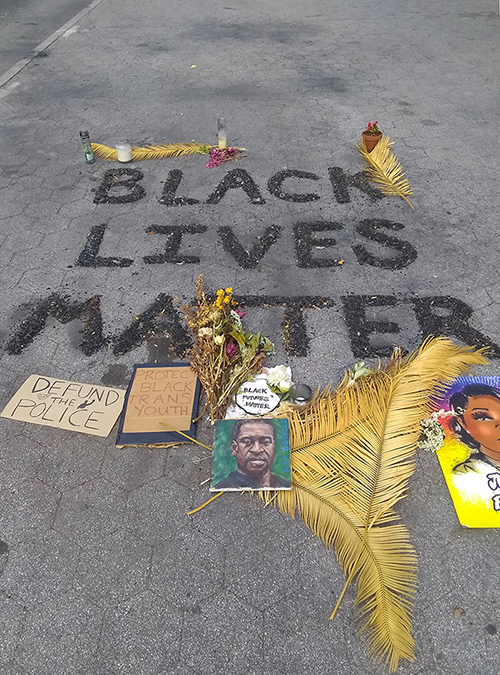 BLACK
LIVES
MATTER
DEFUND
THE
POLICE
PROTECT
BLACK
TRANS
YOUTH
BLACK
FUTURES
MATTER